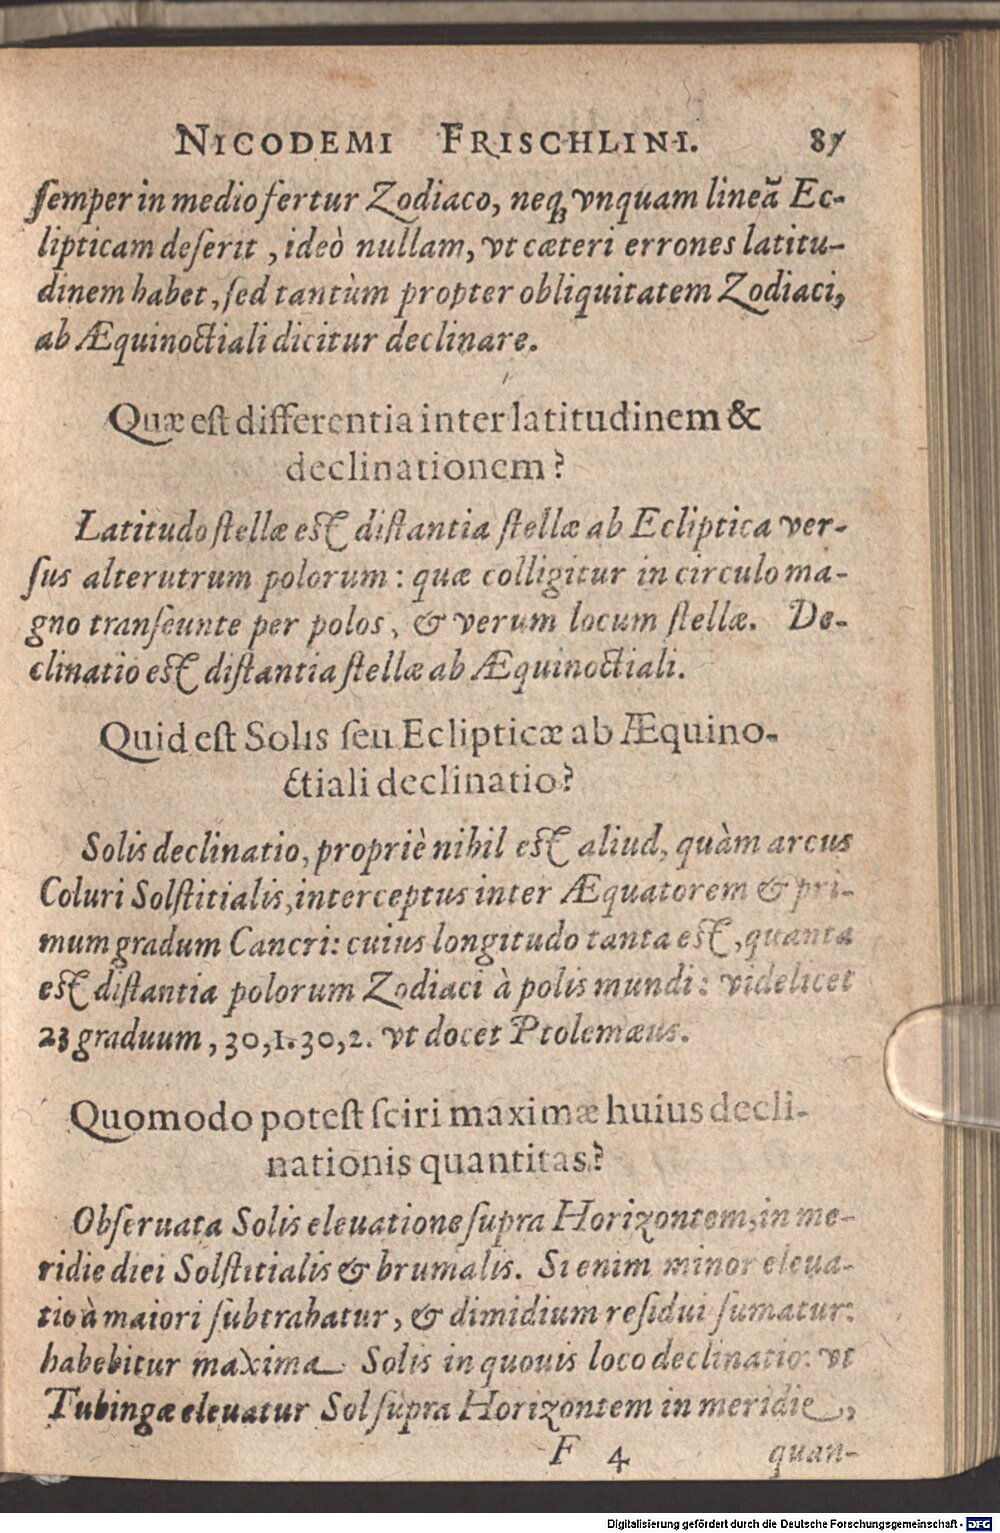 NICODEMI FRISCHLINI. 87
semper in medio fertur Zodiaco, neq; vnquam lineã Ec-
lipticam deserit, ideò nullam, vt cæteri errones latitu-
dinem habet, sed tantùm propter obliquitatem Zodiaci,
ab Æquinoctiali dicitur declinare.
Quæ est differentia inter latitudinem &
declinationem?
Latitudo stellæ est distantia stellæ ab Ecliptica ver-
sus alterutrum polorum: quæ colligitur in circulo ma-
gno transeunte per polos, & verum locum stellæ. De-
clinatio est distantia stellæ ab Æquinoctiali.
Quid est Solis seu Eclipticæ ab Æquino-
ctiali declinatio?
Solis declinatio, propriè nihil est aliud, quàm arcus
Coluri Solstitialis, interceptus inter Æquatorem & pri-
mum gradum Cancri: cuius longitudo tanta est, quanta
est distantia polorum Zodiaci à polis mundi: videlicet
23 graduum, 30,1.30,2. vt docet Ptolemæus.
Quomodo potest sciri maximæ huius decli-
nationis quantitas?
Obseruata Solis eleuatione supra Horizontem, in me-
ridie diei Solstitialis & brumalis. Si enim minor eleua-
tio à maiori subtrahatur, & dimidium residui sumatur:
habebitur maxima Solis in quouis loco declinatio: vt
Tubingæ eleuatur Sol supra Horizontem in meridie,
F 4 quan-
Digitalisierung gefördert durch die Deutsche Forschungsgemeinschaft - DFG